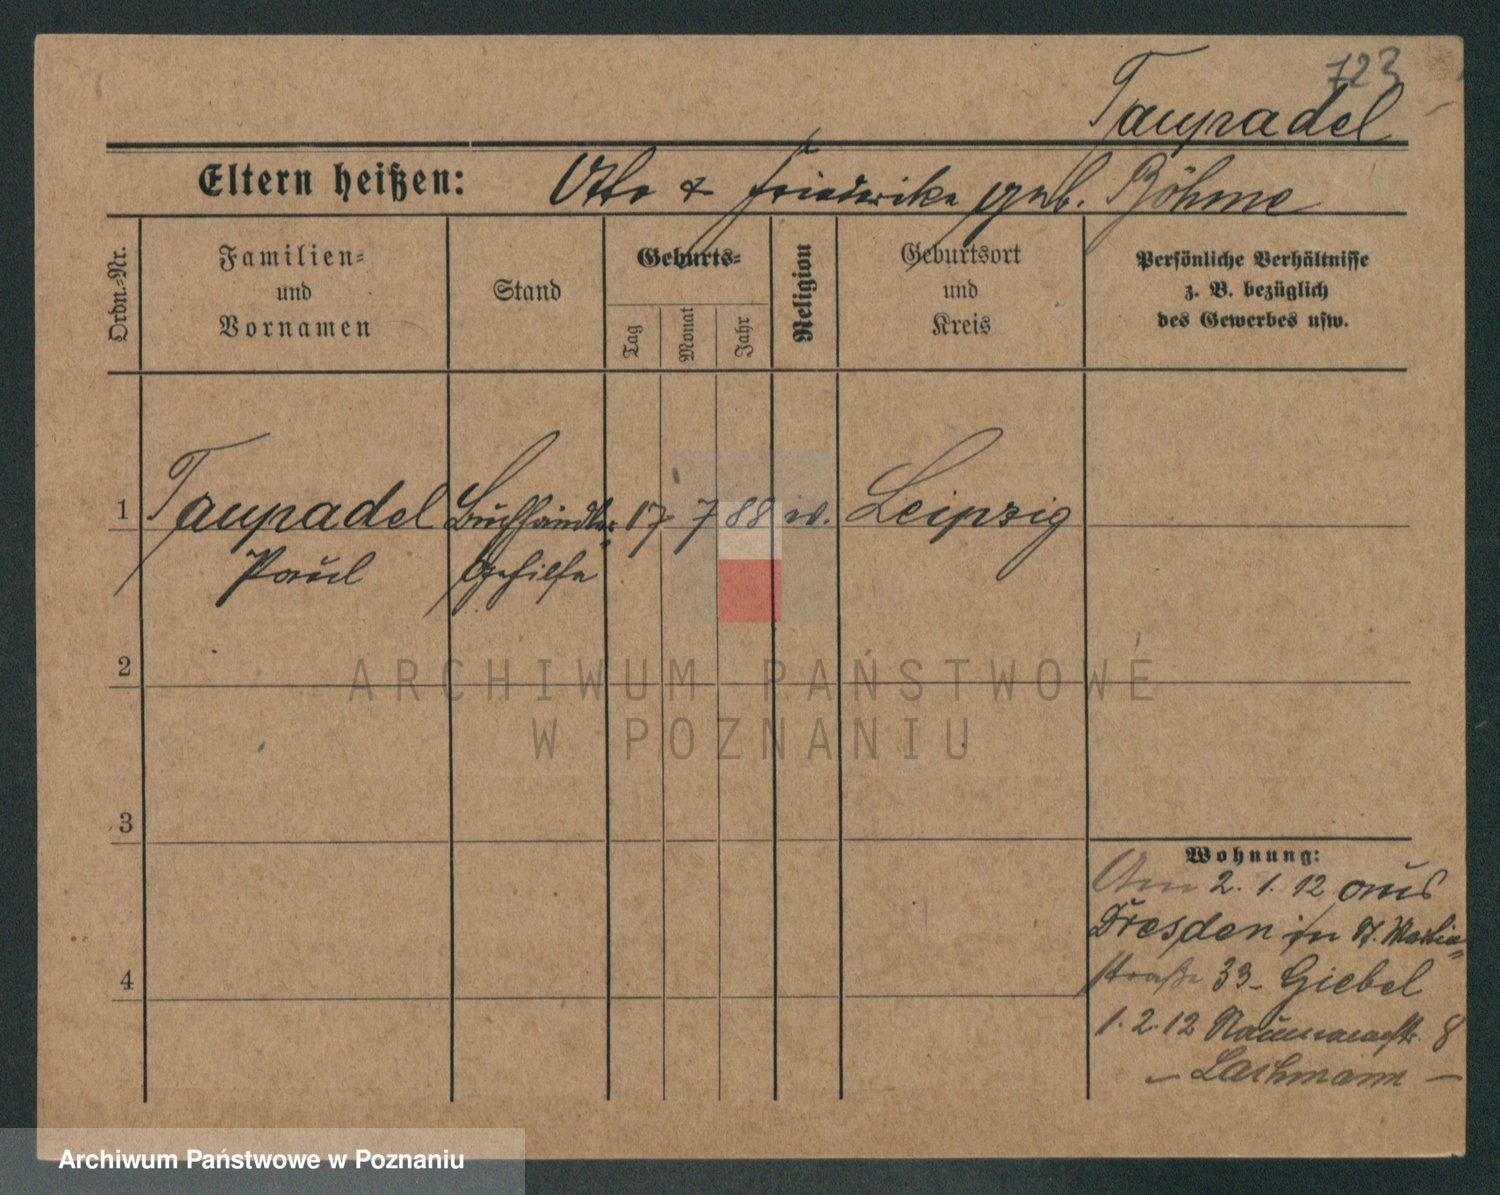 723
Taupadel
Eltern heißen: Otto & Friederike geb. Böhme
Ordn.-Nr.
Familien-
und
Vornamen
Stand
Geburts-
Tag
Monat
Jahr
Religion
Geburtsort
und
Kreis
Persönliche Verhältnisse
z. B. bezüglich
des Gewerbes usw.
1 Taupadel Buchhändler 17 7 88 Leipzig
Paul Gehilfe
2
ARCHIWUM PAŃSTWOWE
W POZNANIU
3
4
Wohnung:
Am 2. 1. 12 aus
Dresden in St. Martin-
straße 33 - Giebel
1. 2. 12 Naumannstr. 8
- Lachmann -
Archiwum Państwowe w Poznaniu